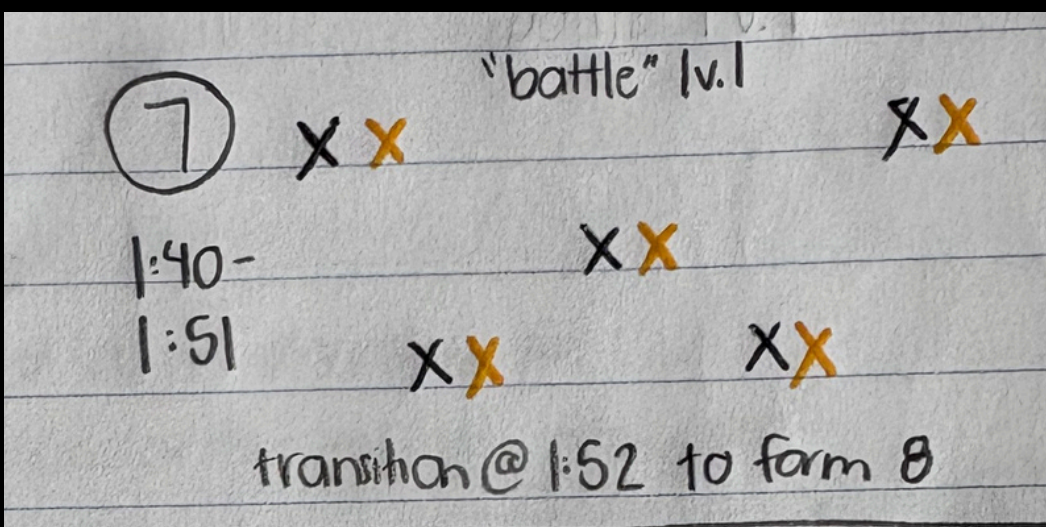 "battle" lv.1
7 X X X X
1:40- X X
1:51 X X X X
transition @ 1:52 to form 8